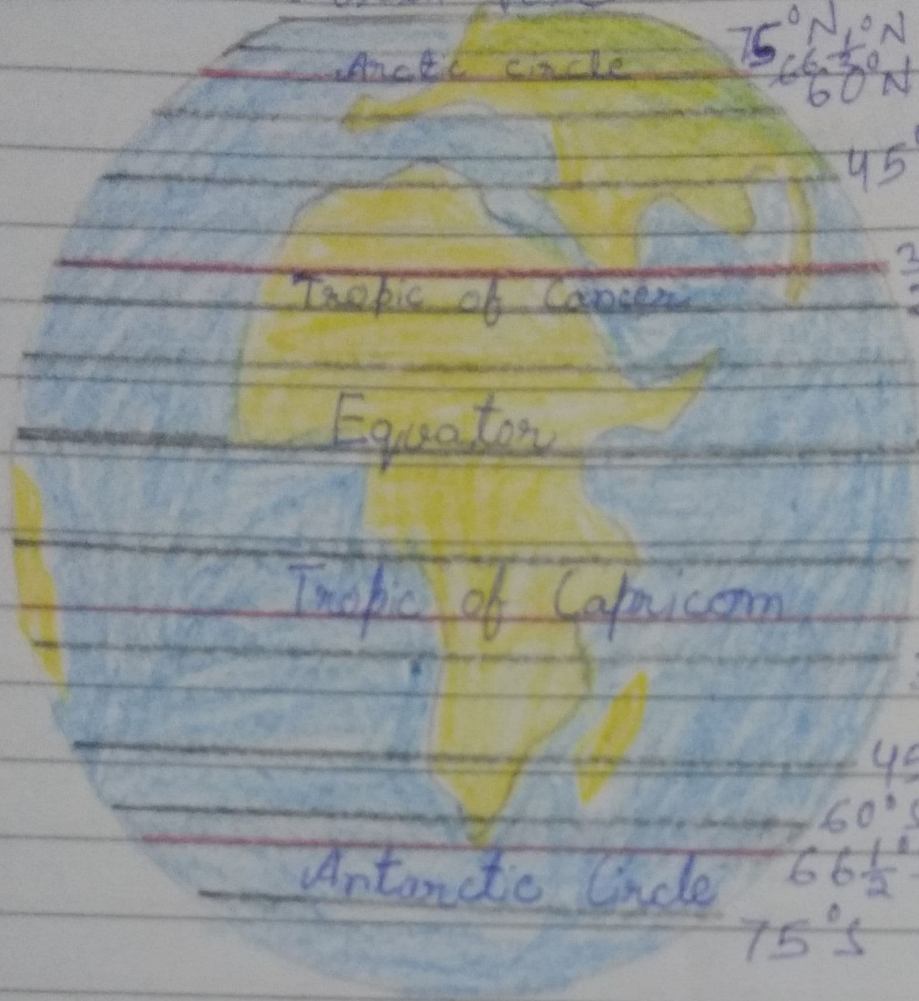 75°N
Arctic circle 66½°N
60°N
45°
Tropic of Cancer
Equator
Tropic of Capricorn
45
60°S
66½°
Antarctic Circle
75°S